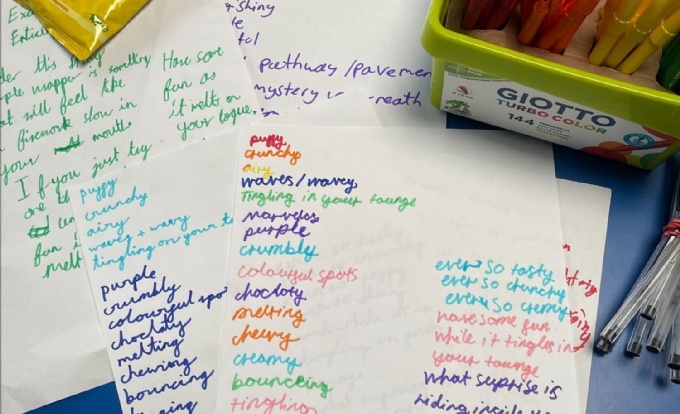 der this
ple wrapper is something
at will feel like
firework slow in
your mouth
Have some
fun as
it melts on
your togue
I f you just try
are
fun i
melt
shiny
pathway /pavemen
mystery
reath
GIOTTO
TURBO COLOR
144
puffy
crunchy
airy
waves + wavy
tingling on your to
purple
crumbly
colourful spot
chocloty
melting
chewing
bouncing
puffy
crunchy
airy
waves/wavey
tingling in your tounge
marvelos
purple
crumbly
colourful spots
chocloty
melting
chewy
creamy
bounceing
tingling
ever so tasty
ever so crunchy
ever so cremy
have some fun
while it tingles in
your tounge
what suprise is
hiding inside